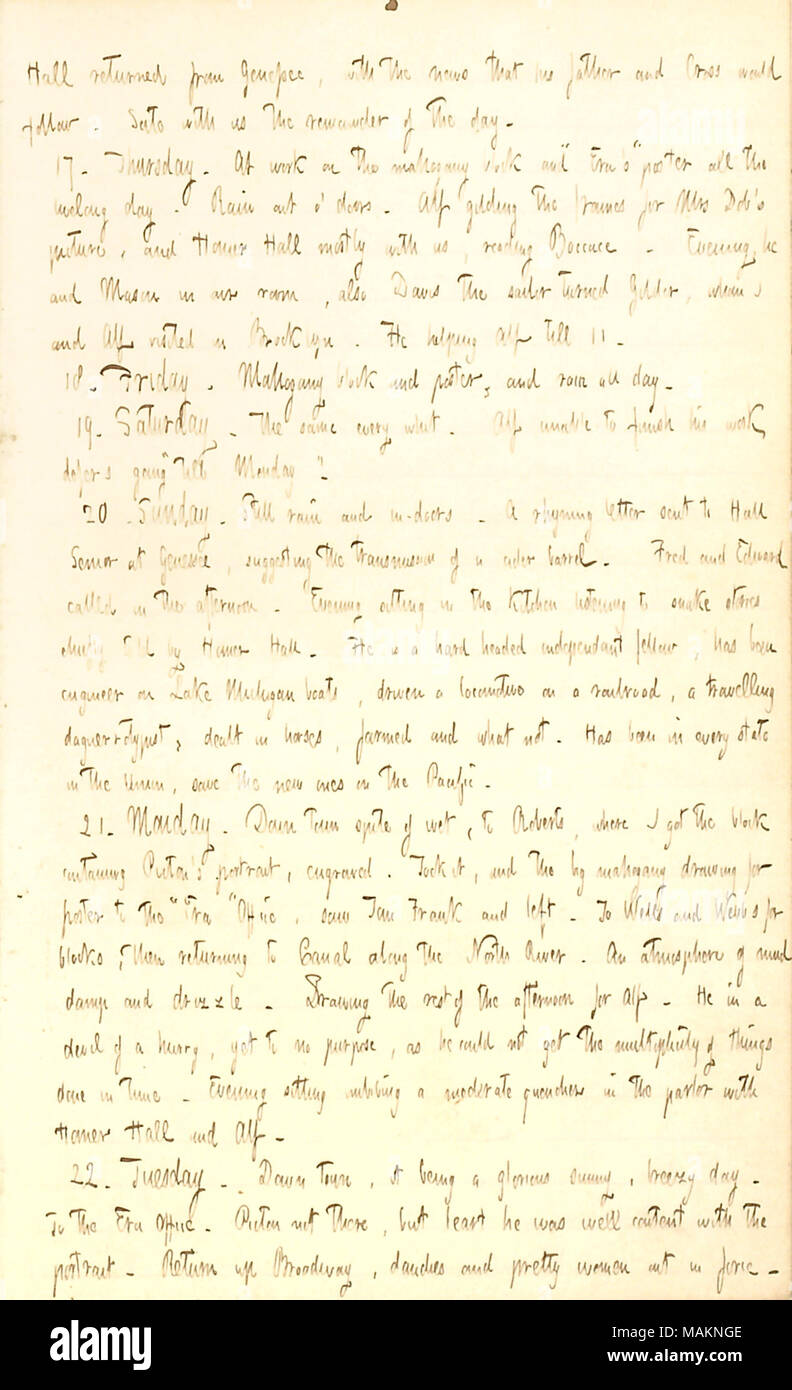 Hall returned from Genessee, with the news that his father and Cross would
follow. Sate with us the remainder of the day.
17. Thursday. At work on the mahogany block and "Era's" poster all the
livelong day. Rain out o' doors. Alf gilding the frames for Mrs Dob's
picture, and Homer Hall mostly with us, reading Boccace. Evening, he
and Mason in our room, also Davis the sailor turned Gilder, whom I
and Alf visited in Brooklyn. He helping Alf till 11.
18. Friday. Mahogany block and poster, and rain all day.
19. Saturday. The same every whit. Alf unable to finish his work,
defers going "till Monday".
20. Sunday. Still rain and in-doors. A rhyming letter sent to Hall
Senior at Genessee, suggesting the transmission of a cider barrel. Fred and Edward
called in the afternoon. Evening sitting in the kitchen listening to snake stories
chiefly told by Homer Hall. He is a hard headed independant fellow, has been
engineer on Lake Michigan boats, driven a locomotive on a railroad, a travelling
daguerrotypist, dealt in horses, farmed and what not. Has been in every state
in the Union, save the new ones on the Pacific.
21. Monday. Down town spite of wet, to Roberts, where I got the block
containing Picton's portrait, engraved. Took it, and the big mahogany drawing for
poster to the "Era" Office, saw Frank and left. To and Webb's for
blocks, then returning to Canal along the North River. An atmosphere of mud
damp and drizzle. Drawing the rest of the afternoon for Alf. He in a
devil of a hurry, yet to no purpose, as he could not get the multiplicity of things
done in time. Evening sitting imbibing a moderate quencher in the parlor with
Homer Hall and Alf.
22. Tuesday. Down town, it being a glorious sunny, breezy day.
To the Era Office. Picton not there, but learnt he was well content with the
portrait. Return up Broadway, dandies and pretty women out in force.
alamy
Image ID: MAKNGE
www.alamy.com